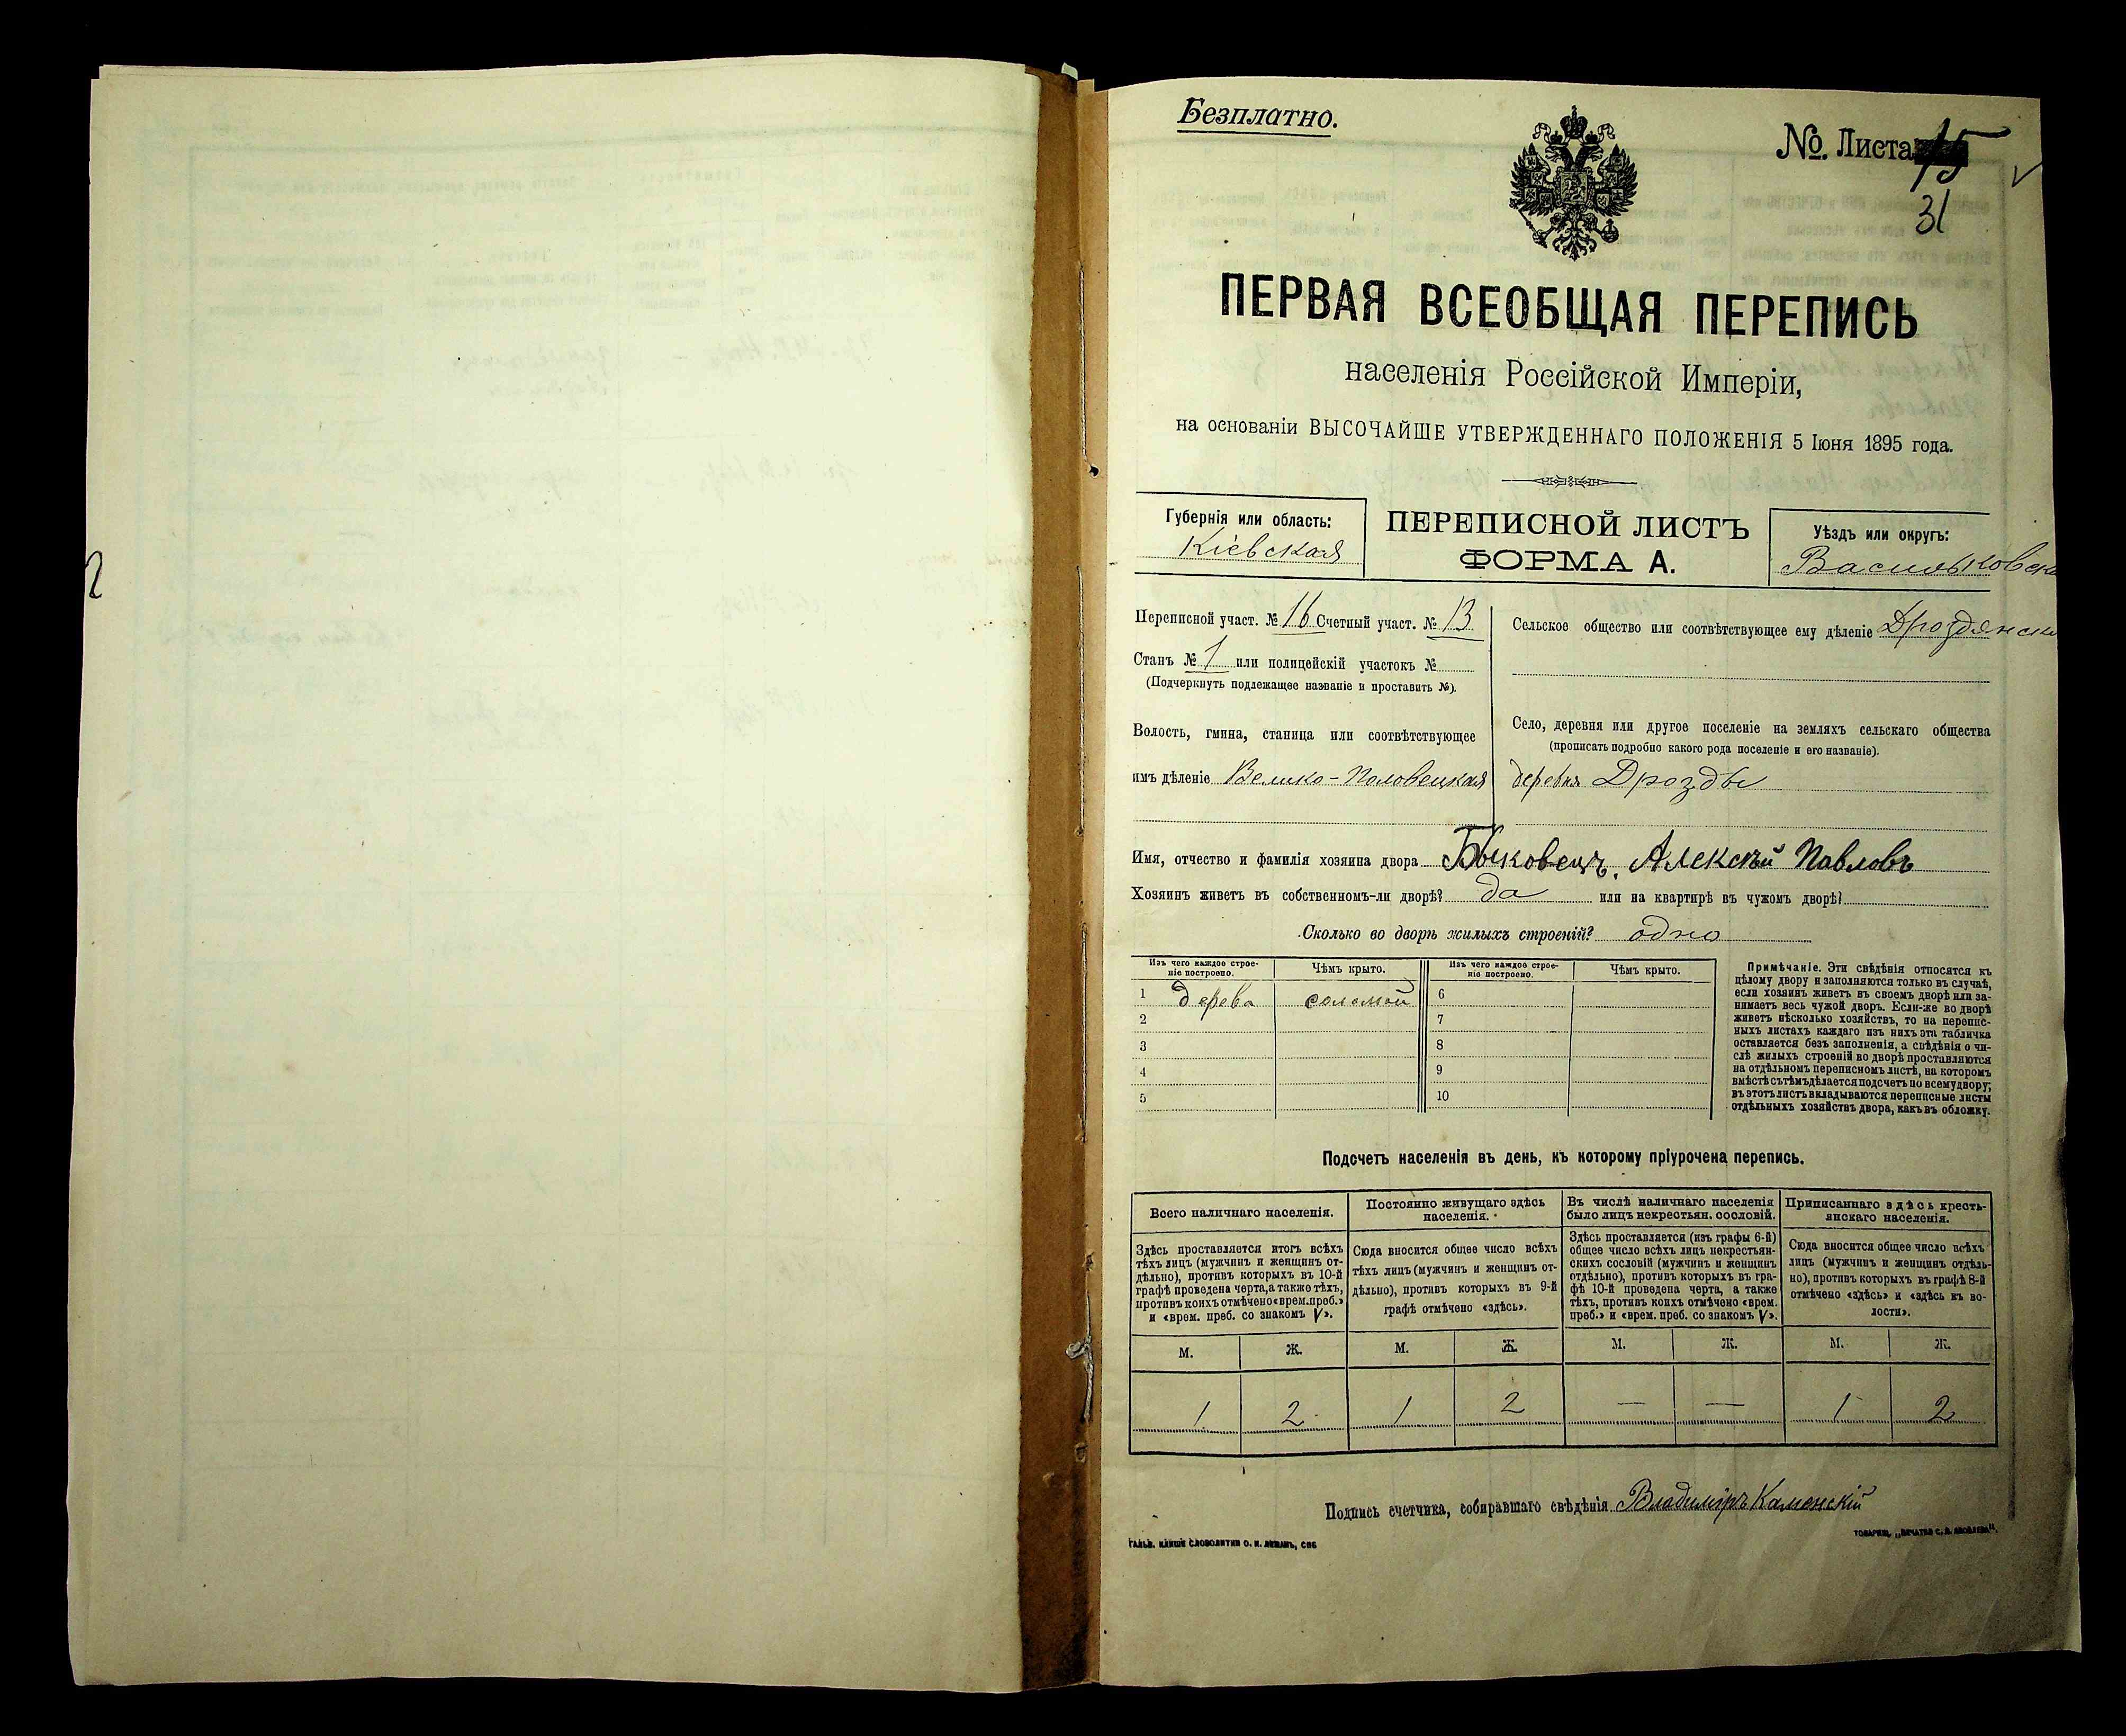 Безплатно.
№. Листа 15
31
ПЕРВАЯ ВСЕОБЩАЯ ПЕРЕПИСЬ
населенія Россійской Имперіи,
на основаніи ВЫСОЧАЙШЕ УТВЕРЖДЕННАГО ПОЛОЖЕНІЯ 5 Іюня 1895 года.
Губернія или область:
Кіевская
ПЕРЕПИСНОЙ ЛИСТЪ
ФОРМА А.
Уѣздъ или округъ:
Васильковск
Переписной участ. № 16 Счетный участ. № 13
Станъ № 1 или полицейскій участокъ №
(Подчеркнуть подлежащее названіе и проставить №).
Волость, гмина, станица или соотвѣтствующее
имъ дѣленіе Велико-Половецкая
Сельское общество или соотвѣтствующее ему дѣленіе Дроздянск
Село, деревня или другое поселеніе на земляхъ сельскаго общества
(прописать подробно какого рода поселеніе и его названіе).
деревня Дрозды
Имя, отчество и фамилія хозяина двора Быковецъ, Алексѣй Павловъ
Хозяинъ живетъ въ собственномъ-ли дворѣ? да или на квартирѣ въ чужомъ дворѣ?
Сколько во дворѣ жилыхъ строеній? одно
Изъ чего каждое строе-
ніе построено.
Чѣмъ крыто.
Изъ чего каждое строе-
ніе построено.
Чѣмъ крыто.
1 дерева соломой 6
2 7
3 8
4 9
5 10
Примѣчаніе. Эти свѣдѣнія относятся къ
цѣлому двору и заполняются только въ случаѣ,
если хозяинъ живетъ въ своемъ дворѣ или за-
нимаетъ весь чужой дворъ. Если-же во дворѣ
живетъ нѣсколько хозяйствъ, то на перепис-
ныхъ листахъ каждаго изъ нихъ эта табличка
оставляется безъ заполненія, а свѣдѣнія о чи-
слѣ жилыхъ строеній во дворѣ проставляются
на отдѣльномъ переписномъ листѣ, на которомъ
вмѣстѣ съ тѣмъ дѣлается подсчетъ по всему двору;
въ этотъ листъ вкладываются переписные листы
отдѣльныхъ хозяйствъ двора, какъ въ обложку.
Подсчетъ населенія въ день, къ которому пріурочена перепись.
Всего наличнаго населенія.
Здѣсь проставляется итогъ всѣхъ
тѣхъ лицъ (мужчинъ и женщинъ от-
дѣльно), противъ которыхъ въ 10-й
графѣ проведена черта, а также тѣхъ,
противъ коихъ отмѣчено «врем. преб.»
и «врем. преб. со знакомъ V».
Постоянно живущаго здѣсь
населенія.
Сюда вносится общее число всѣхъ
тѣхъ лицъ (мужчинъ и женщинъ от-
дѣльно), противъ которыхъ въ 9-й
графѣ отмѣчено «здѣсь».
Въ числѣ наличнаго населенія
было лицъ некрестьян. сословій.
Здѣсь проставляется (изъ графы 6-й)
общее число всѣхъ лицъ некрестьян-
скихъ сословій (мужчинъ и женщинъ
отдѣльно), противъ которыхъ въ гра-
фѣ 10-й проведена черта, а также
тѣхъ, противъ коихъ отмѣчено «врем.
преб.» и «врем. преб. со знакомъ V».
Приписаннаго здѣсь кресть-
янскаго населенія.
Сюда вносится общее число всѣхъ
лицъ (мужчинъ и женщинъ отдѣль-
но), противъ которыхъ въ графѣ 8-й
отмѣчено «здѣсь» и «здѣсь въ во-
лости».
М. Ж. М. Ж. М. Ж. М. Ж.
1 2 1 2 — — 1 2
Подпись счетчика, собиравшаго свѣдѣнія Владиміръ Каменскій
ГАЛЬВ. КЛИШЕ СЛОВОЛИТНИ О. И. ЛЕМАНЪ, СПБ
ТОВАРИЩ. „ПЕЧАТНЯ С. П. ЯКОВЛЕВА".